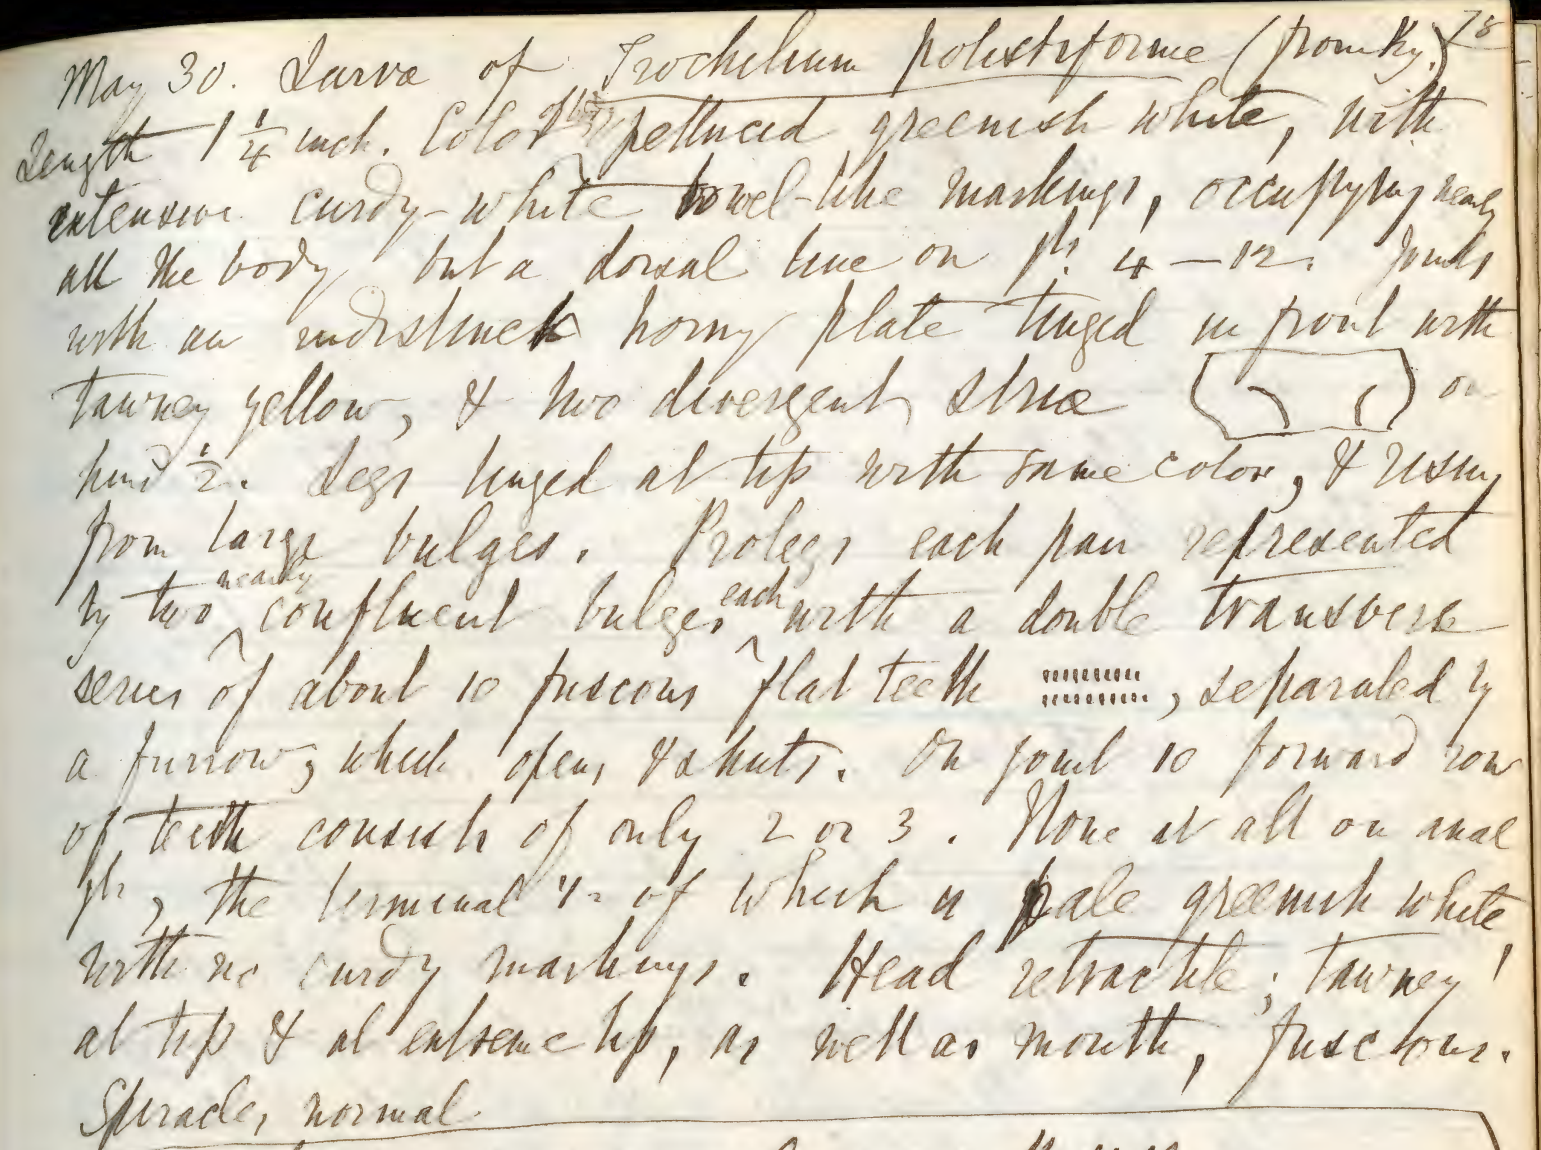 78
May 30. Larva of Trochilium polistiforme (from Ky.)
Length 1 1/4 inch. Color pellucid greenish white, with
extensive curdy-white bowel-like markings, occupying nearly
all the body but a dorsal line on jts. 4—12.
with an indistinct horny plate tinged in front with
tawney yellow, & two divergent striæ on
hind 1/2. Legs tinged at tip with same color, & rising
from large bulges. Prolegs each pair represented
by two nearly confluent bulges each with a double transverse
series of about 10 fuscous flat teeth , separated by
a furrow, which opens & shuts. On joint 10 forward row
of teeth consists of only 2 or 3. None at all on anal
jt, the terminal 1/2 of which is pale greenish white,
with no curdy markings. Head retractile; tawney
at tip & at extreme tip, as well as mouth, fuscous.
Spiracles normal